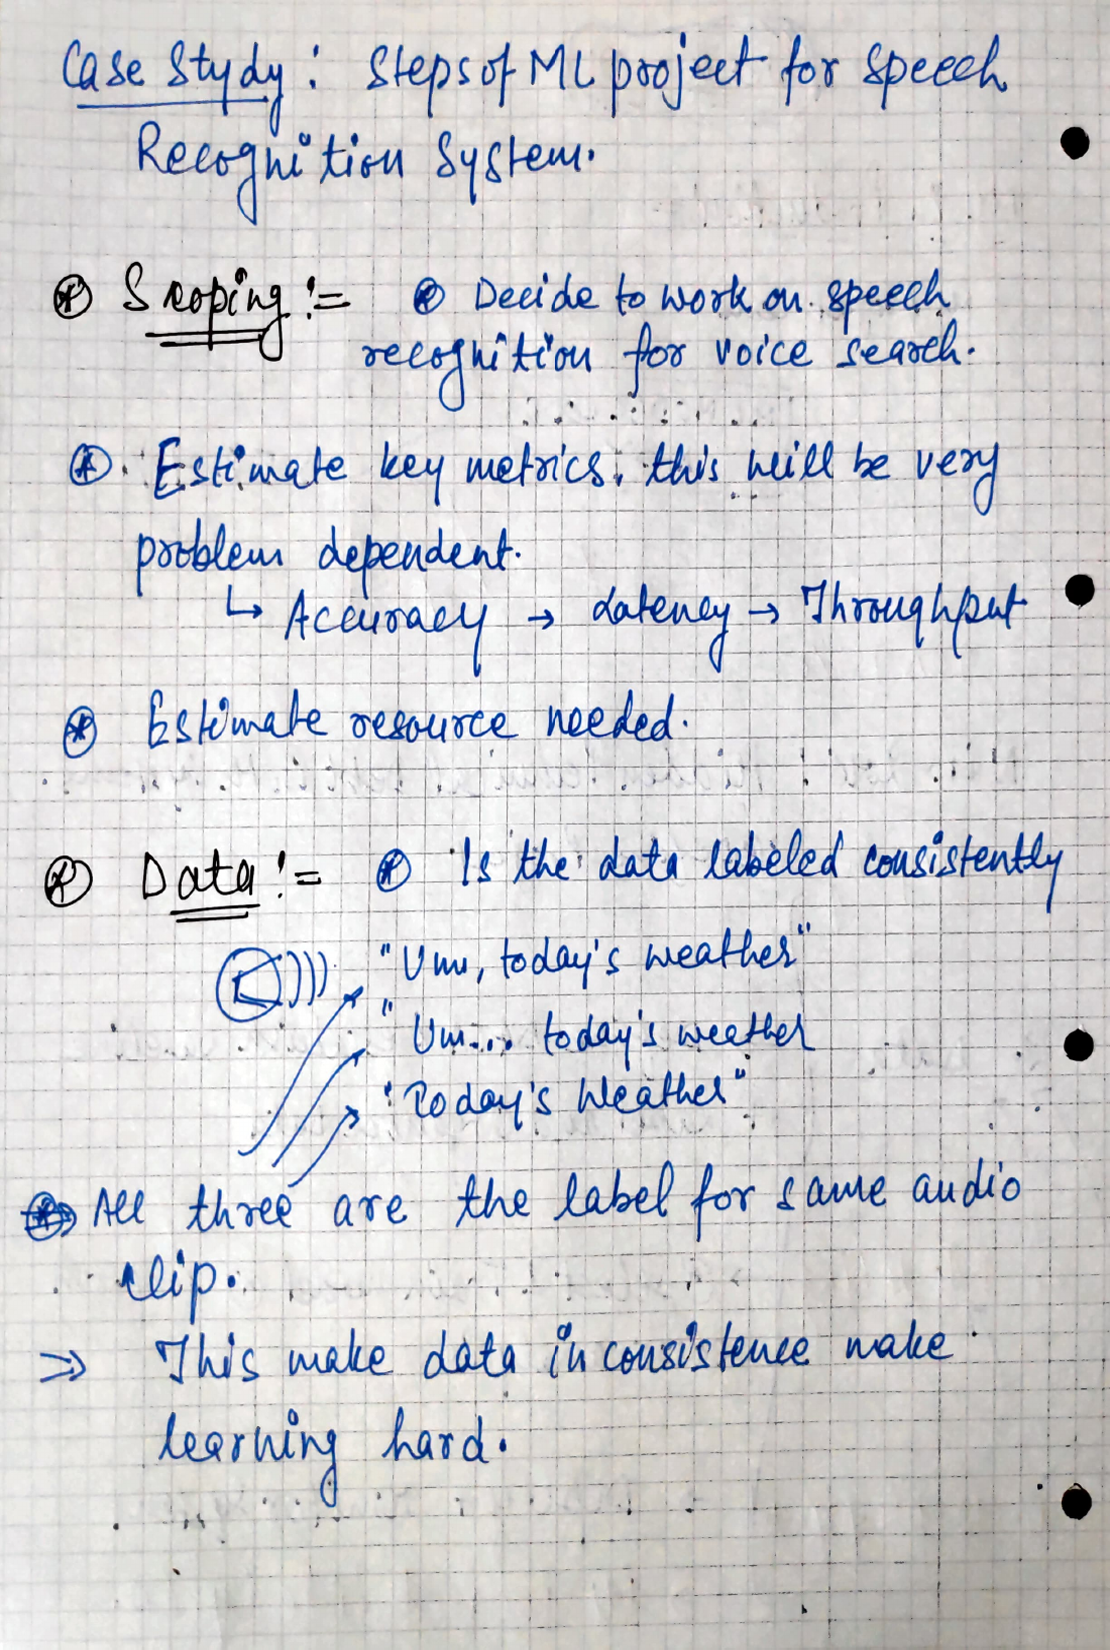 Case Stydy: Steps of ML project for speech
Recognition System.
Scoping := Decide to work on speech
recognition for voice search.
Estimate key metrics, this will be very
problem dependent.
↳ Accuracy → Latency → Throughput
Estimate resource needed.
Data := Is the data labeled consistently
"Um, today's weather"
"Um... today's weather
"Today's Weather"
All three are the label for same audio
clip.
⇒ This make data inconsistence make
learning hard.